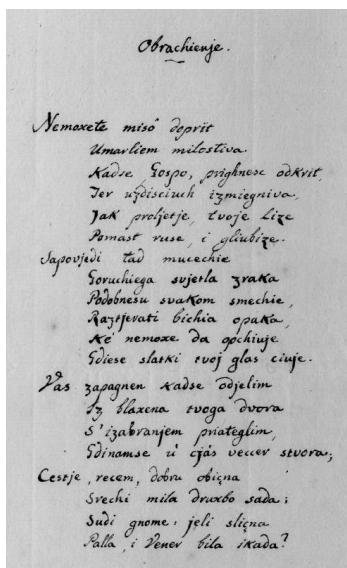 Obrachienje.
Nemoxete misô doprit
Umarliem milostiva.
Kadse, Gospo, prighnesc odkrit,
Ter uzdisciuch izmiegniva,
Jak proljetje, tvoje Lize
Pomast ruse, i gliubize.
Sapovjedi tad mucechie
Goruchiega svjetla zraka
Podobnesu svakom smechie,
Raztjerati bichia opaka,
Ke nemoxe da opchiuje
Gdiese slatki tvoj glas ciuje.
Vas zapagnen kadse odjelim
Iz blaxena tvoga dvora
S'izabranjem priateglim,
Gdinamse ù cjàs veccer stvora;
Cestje, recem, dobru obiçna
Srechi mila druxbo sada;
Sudi gnome: jeli sliçna
Palla, i Vener bila ikada?